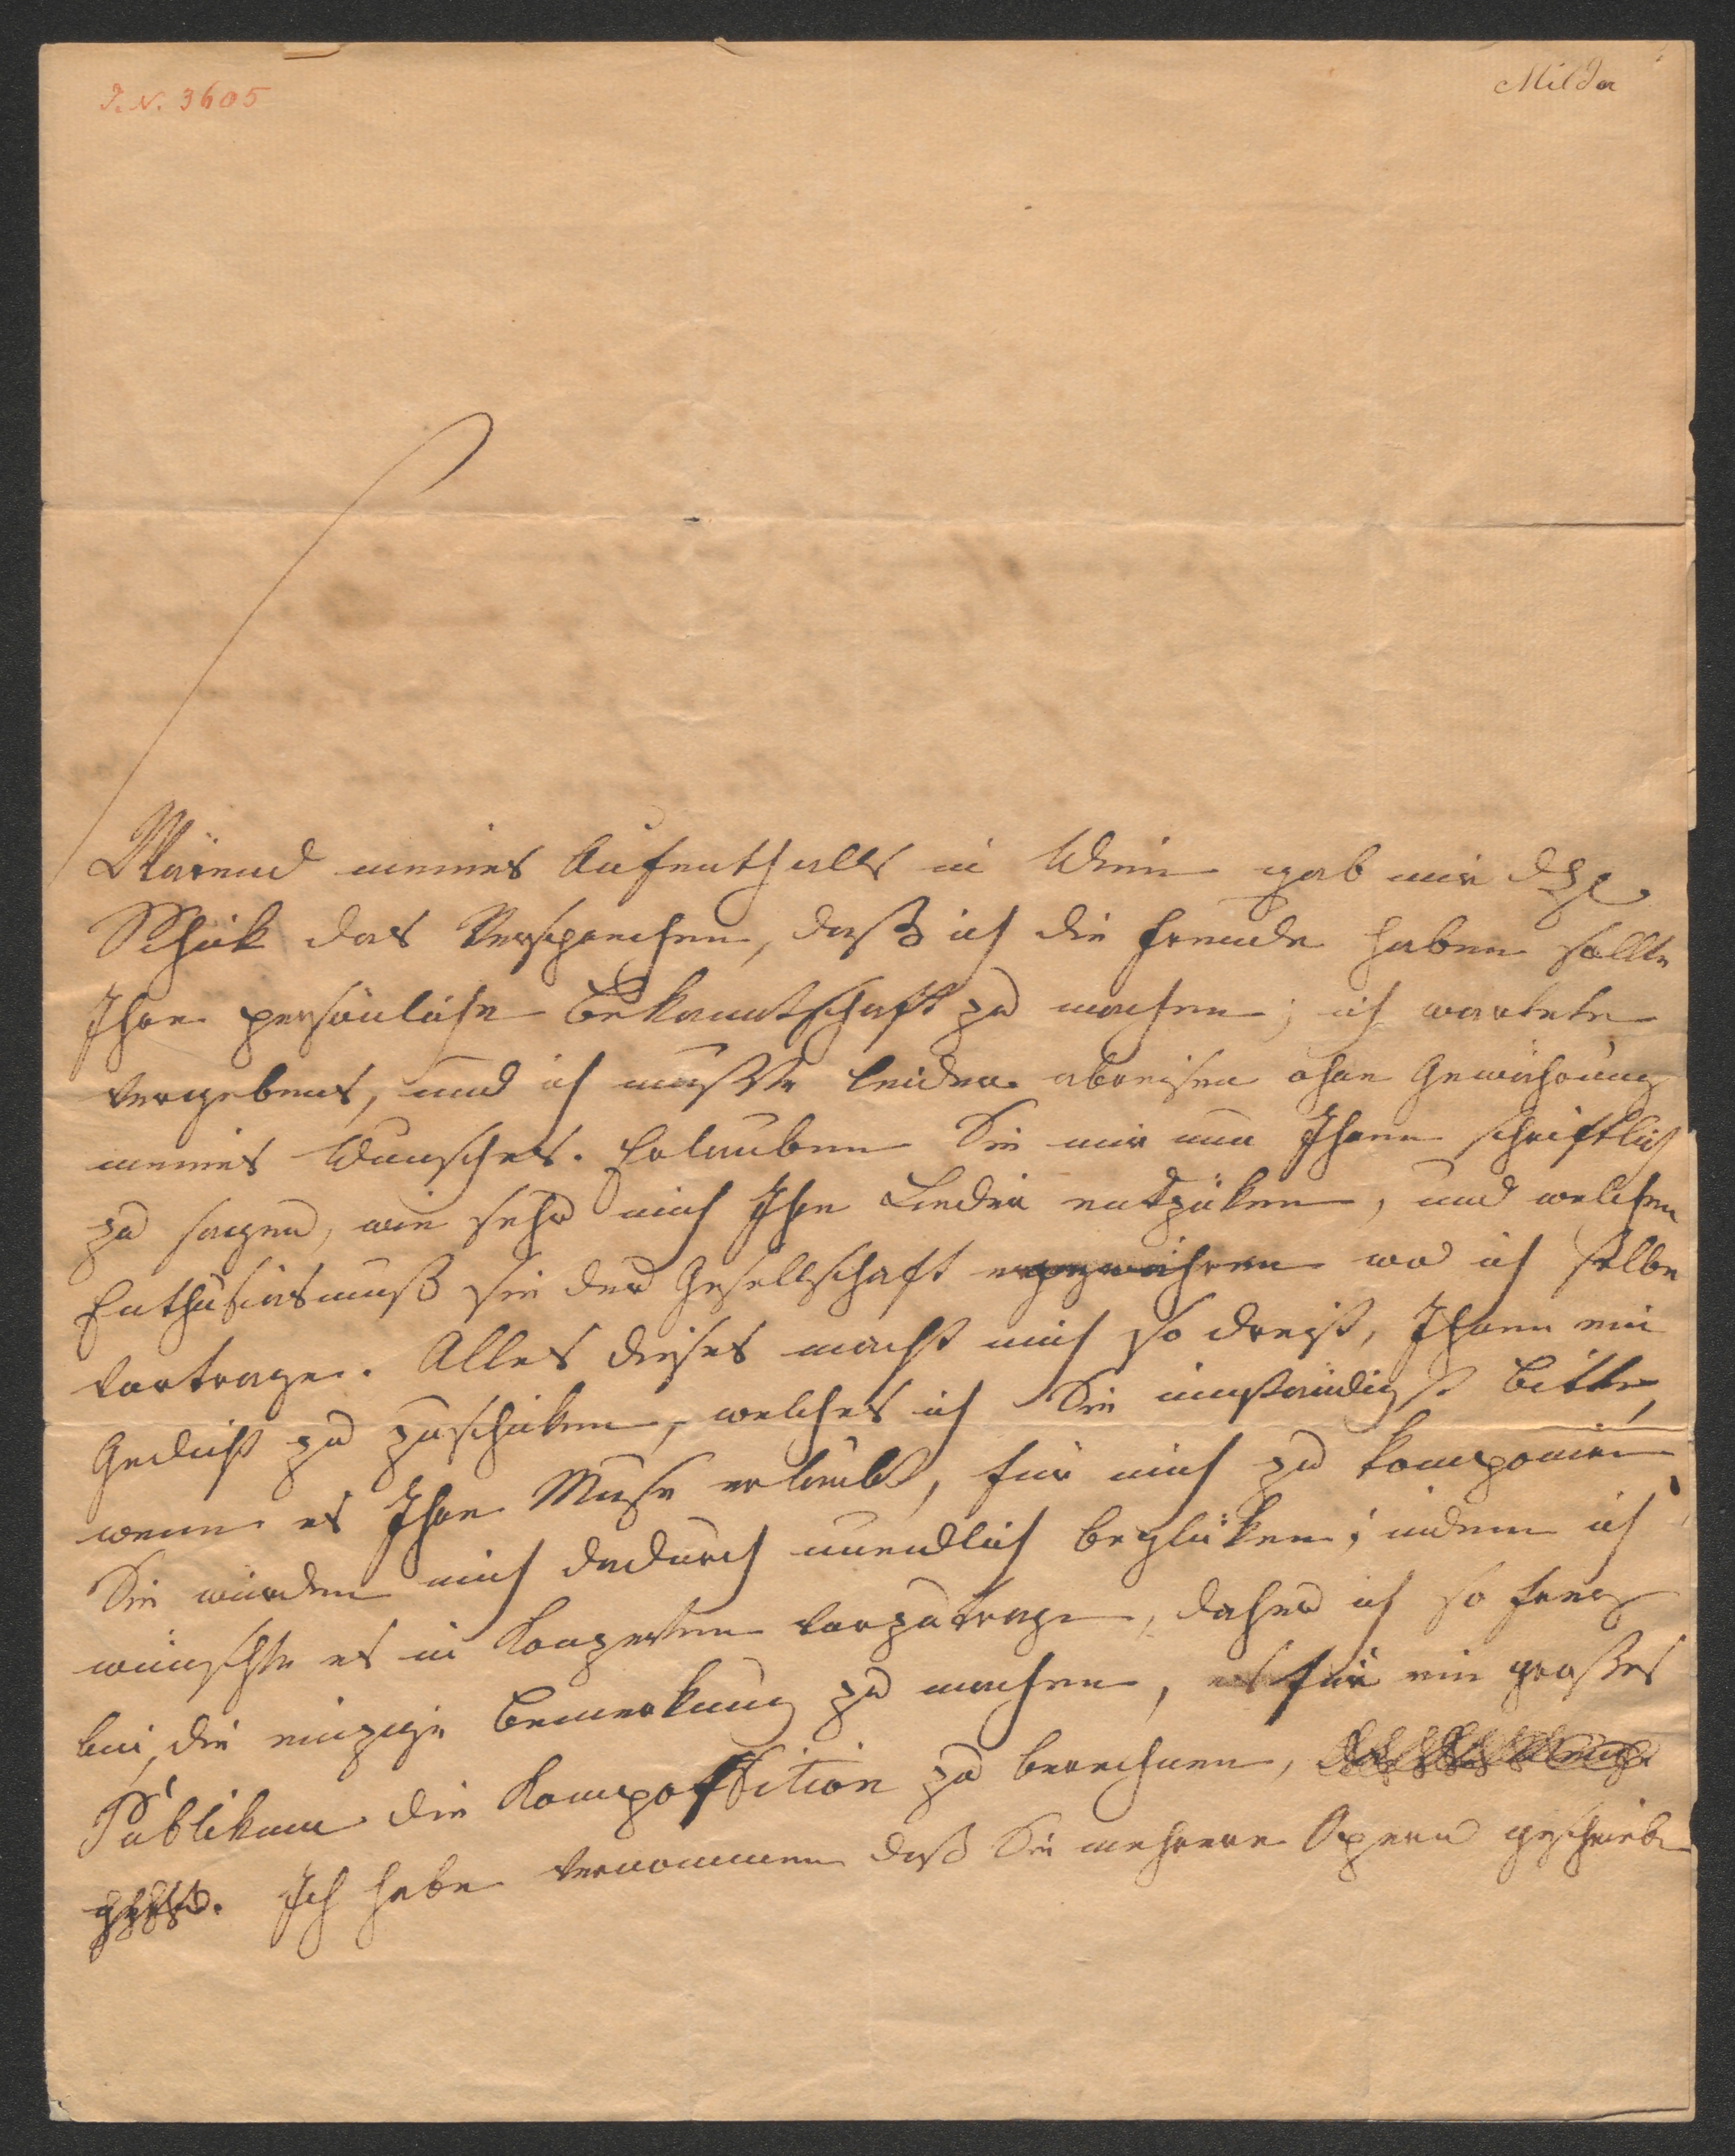 J. N. 3605
Milder
Wärend meines Aufenthalts in Wien gab mir
Schick das Versprechen, daß ich die Freude haben sollte
Ihre persönliche Bekanntschaft zu machen; ich wartete
vergebens, und ich mußte leider abreisen ohne Gewährung
meines Wunsches. Erlauben Sie mir nun Ihnen schriftlich
zu sagen, wie sehr mich Ihre Lieder entzüken, und welchen
Enthusiasmuß sie der Gesellschaft wo ich selbe
vortrage. Alles dieses macht mich so dreist, Ihnen ein
Gedicht zu zuschiken, welches ich Sie innständigst bitte,
wenn es Ihre Muse erlaubt, für mich zu komponiren
Sie würden mich dadurch unendlich beglüken; indem ich
wünschte es in Konzerten vorzutragen, daher ich so frey
bin, die einzige Bemerkung zu machen, es für ein großes
Publikum die Kompossition zu berechnen,
Ich habe vernommen daß Sie mehrere Opern geschrieben